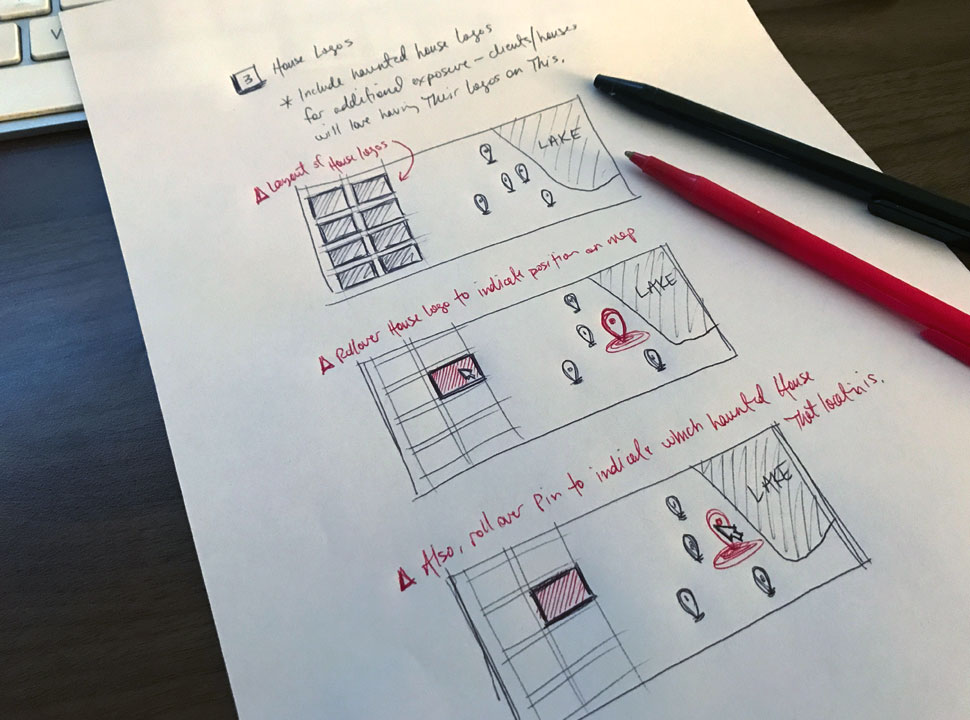 3 House Logos
* Include haunted house logos
for additional exposure - clients/houses
will love having their logos on this.
Layout of House logos
LAKE
Rollover House logo to indicate position on map
LAKE
Also, rollover pin to indicate which haunted House
that location is.
LAKE